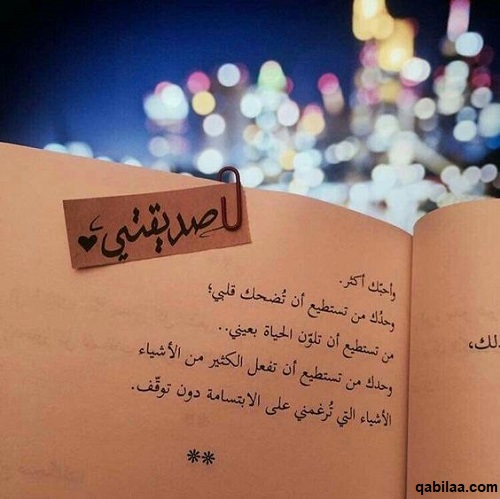 صديقتي
وأحبّك أكثر.
وحدُك من تستطيع أن تُضحك قلبي؛
من تستطيع أن تلوّن الحياة بعيني..
وحدك من تستطيع أن تفعل الكثير من الأشياء
الأشياء التي تُرغمني على الابتسامة دون توقّف.
**
qabilaa.com